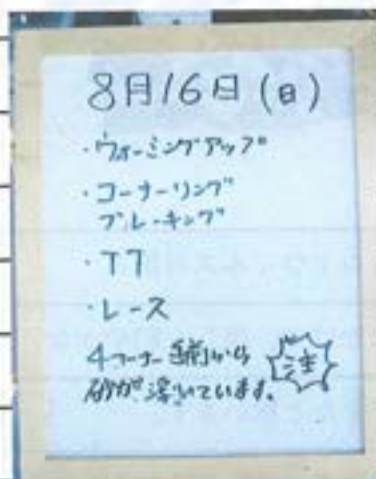 8月16日(日)
・ウォーミングアップ
・コーナーリング
ブレーキング
・TT
・レース
4コーナー手前から
砂が浮いています。
注